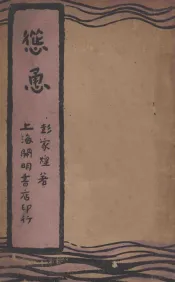 怂恿
彭家煌著
上海開明書店印行